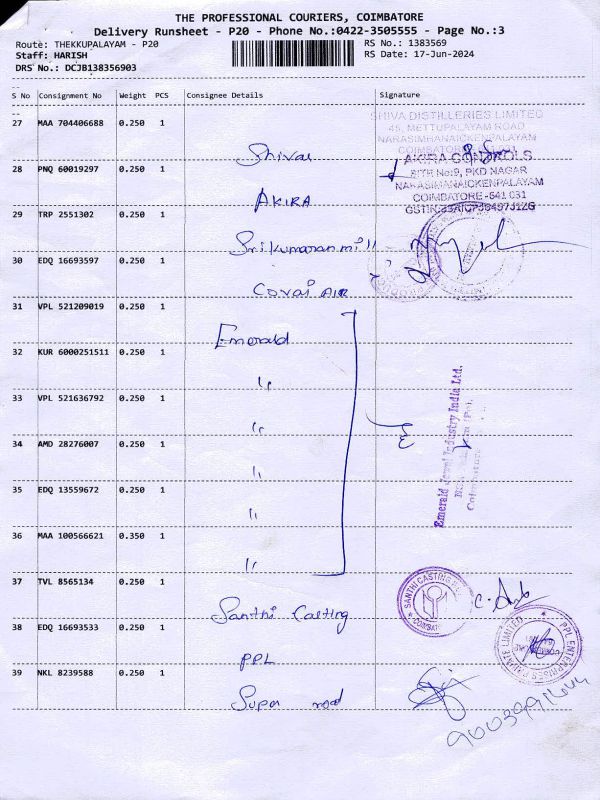 THE PROFESSIONAL COURIERS, COIMBATORE
Delivery Runsheet - P20 - Phone No.:0422-3505555 - Page No.:3
Route: THEKKUPALAYAM - P20
RS No.: 1383569
Staff: HARISH
RS Date: 17-Jun-2024
DRS No.: DCJB138356903
S No Consignment No Weight PCS Consignee Details Signature
27 MAA 704406688 0.250 1
Shiva
SHIVA DISTILLERIES LIMITED
45, METTUPALAYAM ROAD
NARASIMHANAICKENPALAYAM
COIMBATORE
28 PNQ 60019297 0.250 1
AKIRA
AKIRA CONTROLS
SITE No:9, PKD NAGAR
NARASIMANAICKENPALAYAM
COIMBATORE-641 031
29 TRP 2551302 0.250 1
Sri Kumaran mill
30 EDQ 16693597 0.250 1
Covai AIR
31 VPL 521209019 0.250 1
Emerald
32 KUR 6000251511 0.250 1
"
33 VPL 521636792 0.250 1
"
34 AMD 28276007 0.250 1
"
35 EDQ 13559672 0.250 1
"
36 MAA 100566621 0.350 1
"
Emerald Jewel Industry India Ltd.
Coimbatore
37 TVL 8565134 0.250 1
Santhi Casting
SANTHI CASTING
38 EDQ 16693533 0.250 1
PPL
PPL ENTERPRISES PRIVATE LIMITED
39 NKL 8239588 0.250 1
Super